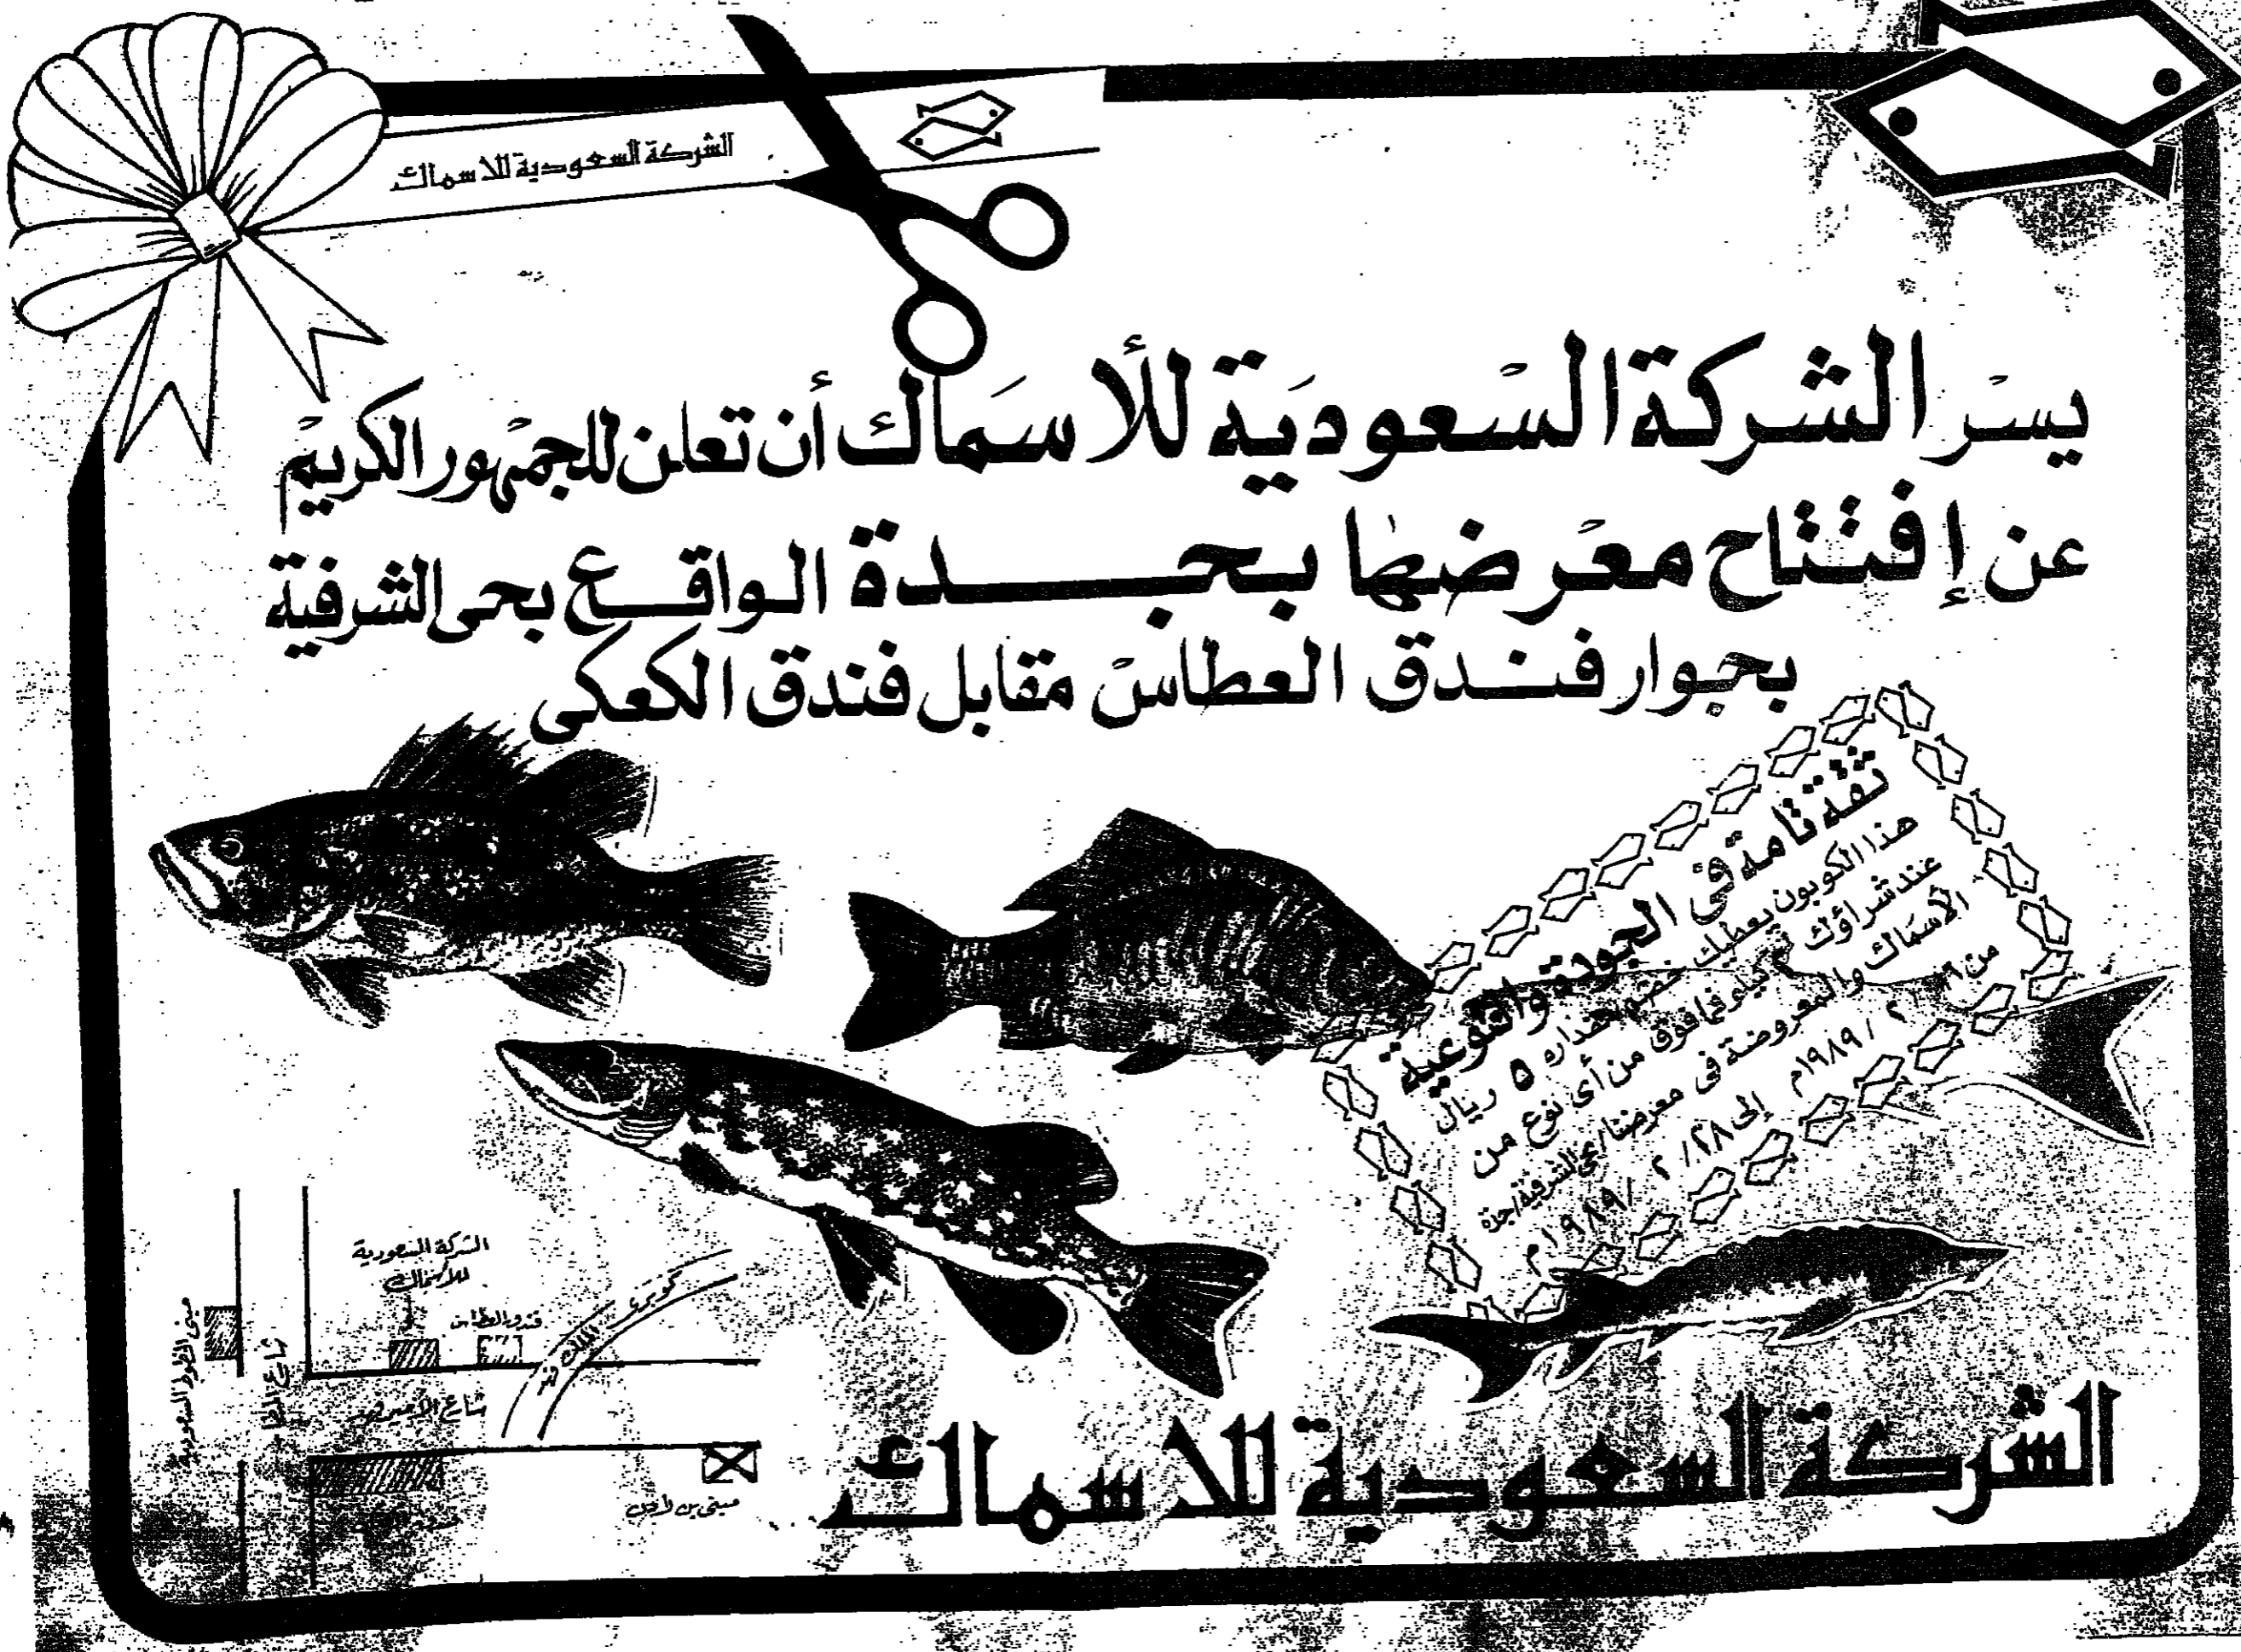 الشركة السعودية للاسماك
يسر الشركة السعودية للأسماك أن تعلن للجمهور الكريم
عن إفتتاح معرضها بجدة الواقع بحى الشرفية
بجوار فندق العطاس مقابل فندق الكعكى
ثقة تامة فى الجودة والنوعية
هذا الكوبون يعطيك خصم مقداره ٥ ريال
عند شراؤك كيلو فما فوق من أى نوع من
الأسماك والمعروضة فى معرضنا / بحى الشرفية / جدة
من ٢ / ١٩٨٩م إلى ٢٨ / ٢ / ١٩٨٩م
الشركة السعودية
للأسماك
فندق العطاس
كوبرى الملك فهد
مبنى الخطوط السعودية
شارع
شارع الأمير
مبنى بن لادن
الشركة السعودية للاسماك